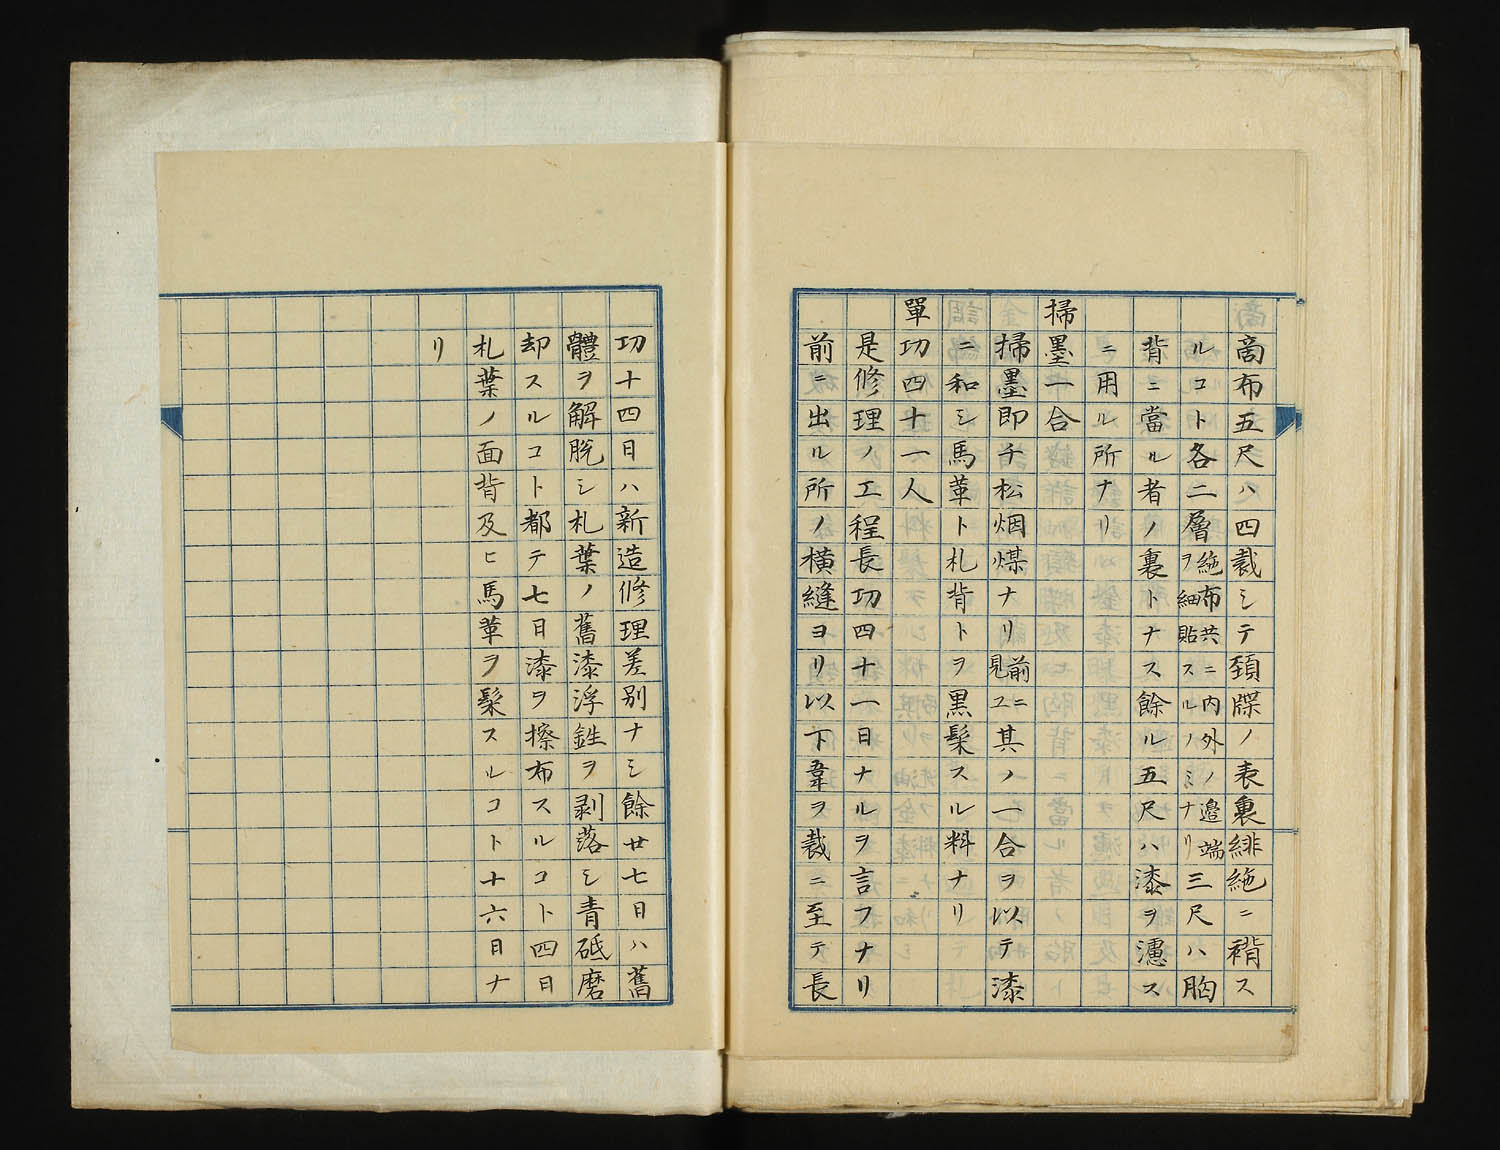 商布五尺ハ四裁シテ頚牒ノ表裏緋絁ニ褙ス
ルコト各二層絁布共ニ内外ノ邉端ヲ細貼スルノミナリ三尺ハ胸
背ニ當ル者ノ裏トナス餘ル五尺ハ漆ヲ濾ス
ニ用ル所ナリ
掃墨一合
掃墨即チ松烟煤ナリ前ニ見ユ其ノ一合ヲ以テ漆
ニ和シ馬革ト札背トヲ黒髹スル料ナリ
單功四十一人
是修理ノ工程長功四十一日ナルヲ言フナリ
前ニ出ル所ノ横縫ヨリ以下韋ヲ裁ニ至テ長
功十四日ハ新造修理差別ナシ餘廿七日ハ舊
體ヲ解脱シ札葉ノ舊漆浮鉎ヲ剥落シ青砥磨
却スルコト都テ七日漆ヲ擦布スルコト四日
札葉ノ面背及ヒ馬革ヲ髹スルコト十六日ナ
リ